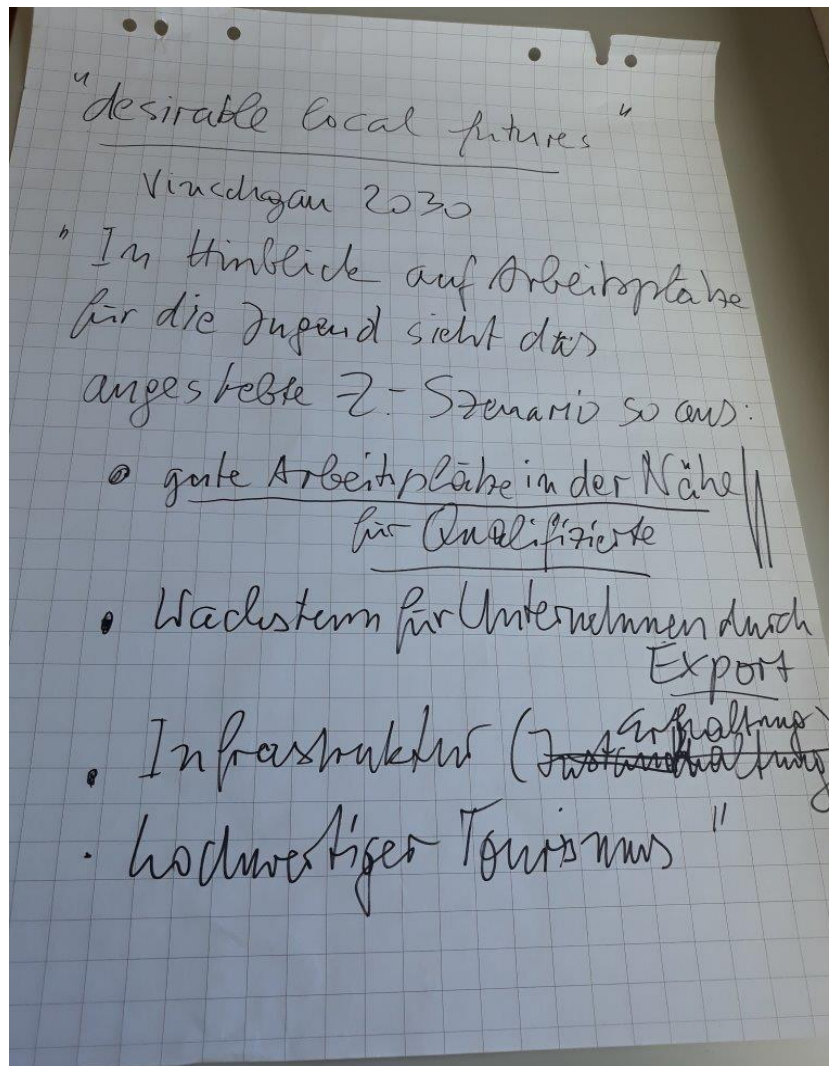 "desirable local futures"
Vinschgau 2030
"Im Hinblick auf Arbeitsplätze
für die Jugend sieht das
angestrebte Z-Szenario so aus:
• gute Arbeitsplätze in der Nähe
für Qualifizierte
• Wachstum für Unternehmen durch
Export
Erhaltung)
• Infrastruktur (Instandhaltung
• hochwertiger Tourismus"